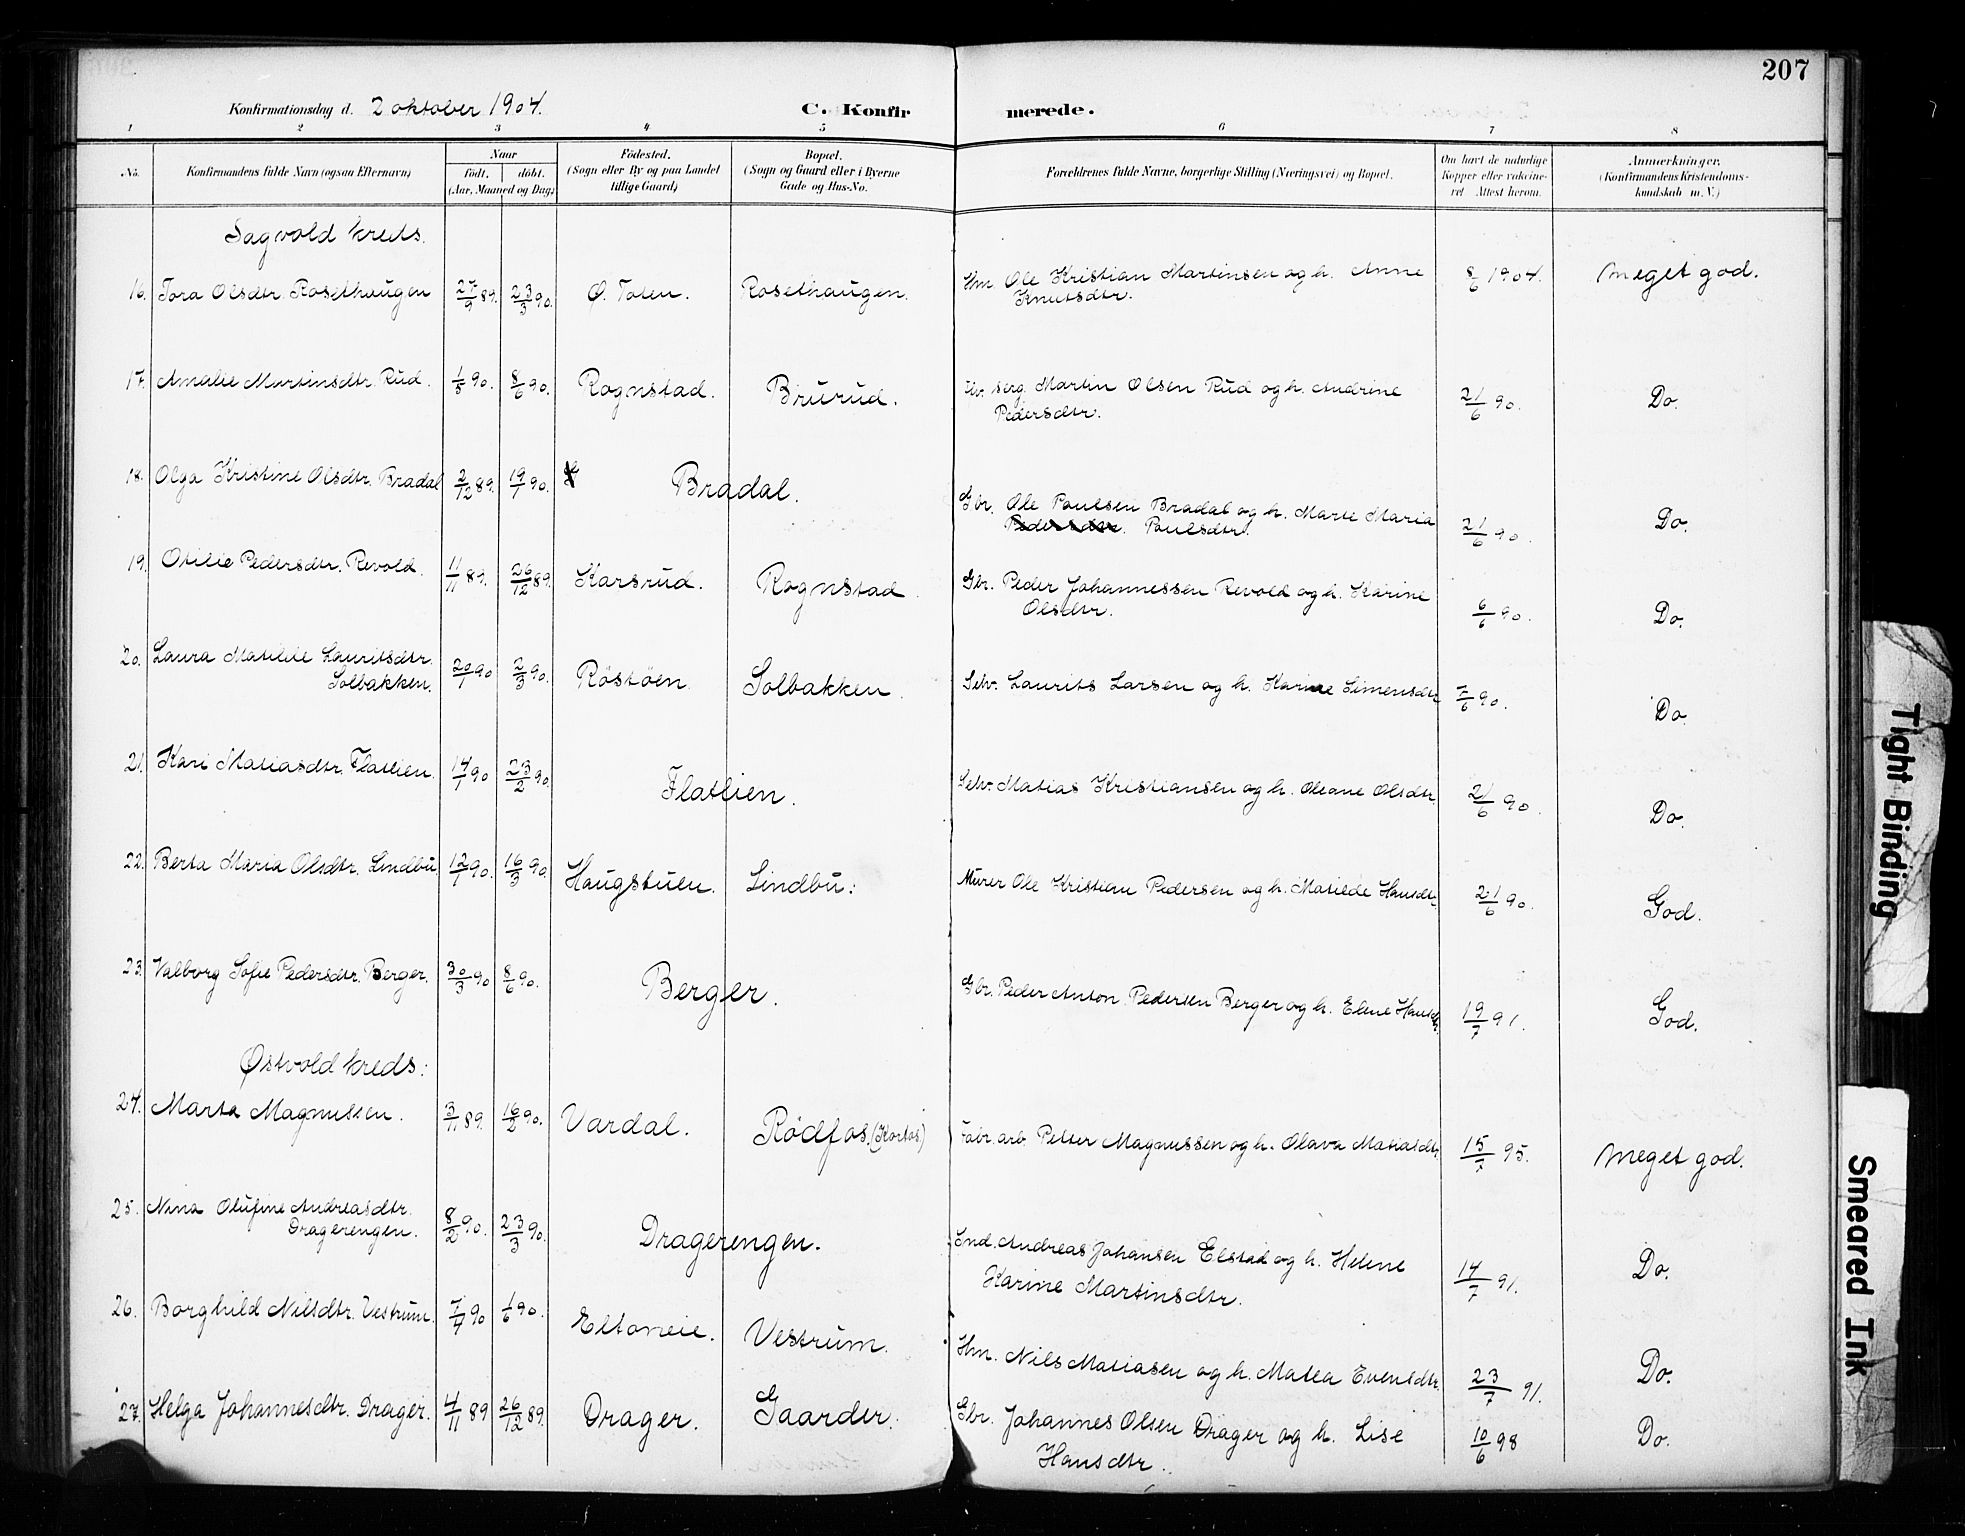 207
Konfirmationsdag d. 2 oktober 1904. C. Konfirmerede.
1 2 3 4 5 6 7 8
No. Konfirmandens fulde Navn (ogsaa Efternavn) Naar født. døbt. (Aar, Maaned og Dag) Fødested. (Sogn eller By og paa Landet tillige Gaard) Bopæl. (Sogn og Gaard eller i Byerne Gade og Hus-No. Forældrenes fulde Navne, borgerlige Stilling (Næringsvei) og Bopæl. Om havt de naturlige Kopper eller vakcineret Attest herom. Anmærkninger. (Konfirmandens Kristendomskundskab m. V.)
Sagvold kreds.
16. Tora Olsdtr. Rosethaugen 27/9 89. 23/3 90. Ø. Toten. Rosethaugen. Hm. Ole Kristian Martinsen og h. Anne Knutsdtr. 8/6 1904. Meget god.
17. Amalie Martinsdtr. Rud. 1/5 90. 8/6 90. Rognstad. Brurud. serg. Martin Olsen Rud og h. Andrine Pedersdtr. 21/6 90. Do.
18. Olga Kristine Olsdtr. Bradal 2/12 89. 19/1 90. Bradal. Gbr. Ole Paulsen Bradal og h. Marte Maria Pedersdtr. Paulsdtr. 21/6 90. Do.
19. Otilie Pedersdtr. Revold. 11/11 89. 26/12 89. Karsrud. Rognstad. Gbr. Peder Johannessen Revold og h. Karine Olsdtr. 6/6 90. Do.
20. Laura Matilde Lauritsdtr. Solbakken. 20/1 90 2/3 90. Röstöen. Solbakken. Selv. Laurits Larsen og h. Karine Simensdtr. 7/6 90. Do.
21. Kari Matiasdtr. Flatlien. 14/1 90 23/2 90. Flatlien. Selv. Matias Kristiansen og h. Oleane Olsdtr. 21/6 90. Do.
22. Berta Maria Olsdtr. Lindbu 12/1 90. 16/3 90 Haugstuen. Lindbu. Murer Ole Kristian Pedersen og h. Matilde Hansdtr. 21/6 90. God.
23. Valborg Sofie Pedersdtr. Berger. 30/3 90 8/6 90. Berger. Gbr. Peder Anton Pedersen Berger og h. Eline Hansdtr. 19/7 91. God.
Østvold kreds:
24. Marta Magnussen. 3/11 89. 16/2 90. Vardal. Rödfos. (Kortos) Fabr. arb. Petter Magnussen og h. Olava Matiasdtr. 15/7 95. Meget god.
25. Nina Olufine Andreasdtr. Dragerengen. 8/2 90. 23/3 90. Dragerengen. Ind. Andreas Johansen Elstad og h. Helene Karine Martinsdtr. 14/7 91. Do.
26. Borghild Nilsdtr. Vestrum. 7/4 90 1/6 90. Eltoneie. Vestrum. Hm. Nils Matiasen og h. Matea Evensdtr. 23/7 91. Do.
27. Helga Johannesdtr. Drager. 4/11 89 26/12 89. Drager. Gaarder. Gbr. Johannes Olsen Drager og h. Lise Hansdtr. 10/6 98 Do.
Tight Binding
Smeared Ink